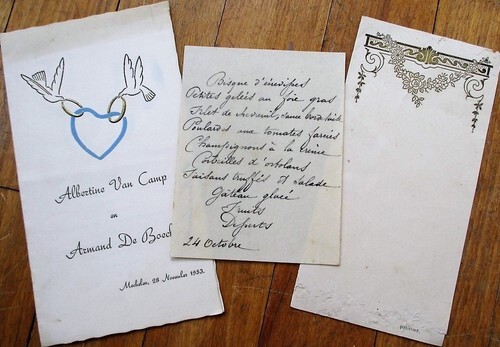 Albertine Van Camp
en
Armand De Boeck
Mechelen, 28 November 1953.
Bisque d'écrevisses
Petites gelées au foie gras
Filet de chevreuil, sauce bordelaise
Poulardes aux tomates farcies
Champignons à la reine
Corbeilles d'ortolans
Faisans truffés et Salade
Gâteau glacé
Fruits
Desserts
24 Octobre